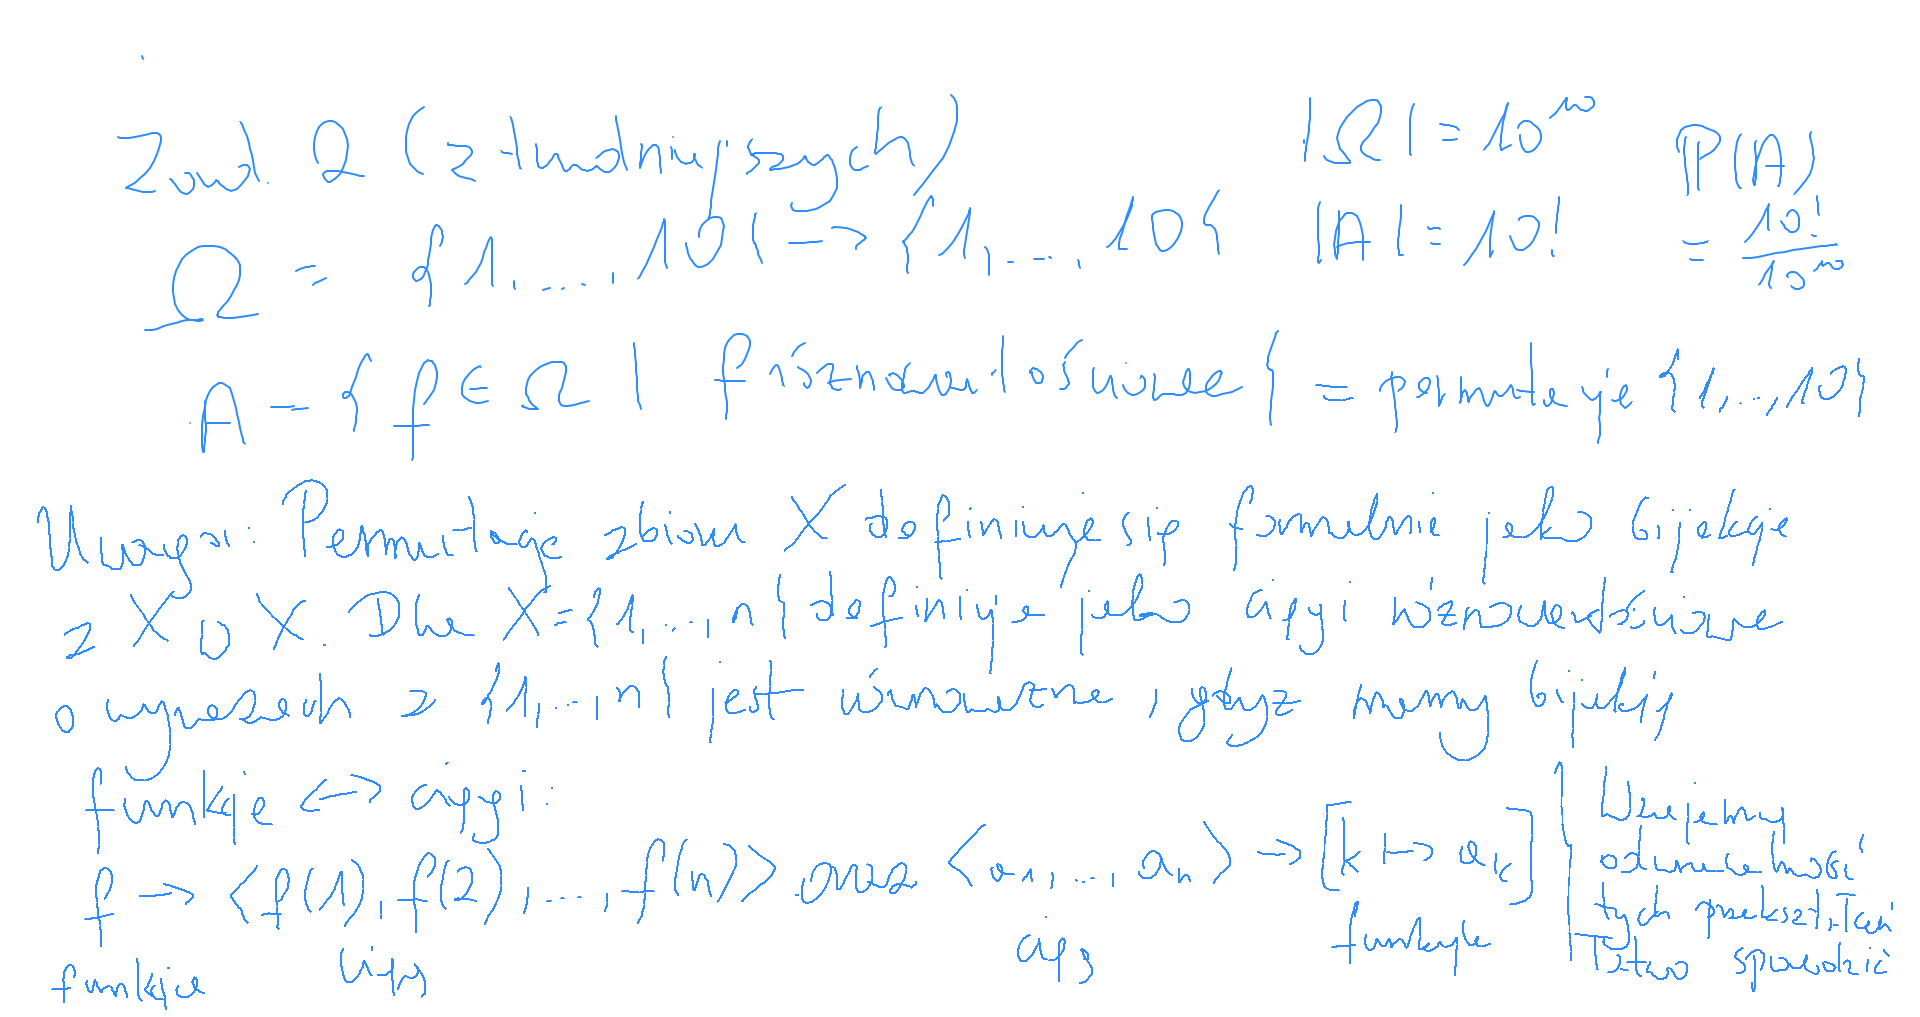 Zad. 2 (z trudniejszych) |Ω| = 10¹⁰ P(A)
Ω = {1, ..., 10} → {1, ..., 10} |A| = 10! = 10!/10¹⁰
A = {f ∈ Ω | f różnowartościowe} = permutacje {1,...,10}
Uwaga: Permutacje zbioru X definiuje się formalnie jako bijekcje
z X w X. Dla X={1,...,n} definicja jako ciągi różnowartościowe
o wyrazach z {1,...,n} jest równoważna, gdyż mamy bijekcję
funkcje ↔ ciągi:
f → <f(1), f(2), ..., f(n)> oraz <a₁, ..., aₙ> → [k ↦ aₖ]
funkcja ciąg ciąg funkcja
Wzajemną
odwracalność
tych przekształceń
łatwo sprawdzić